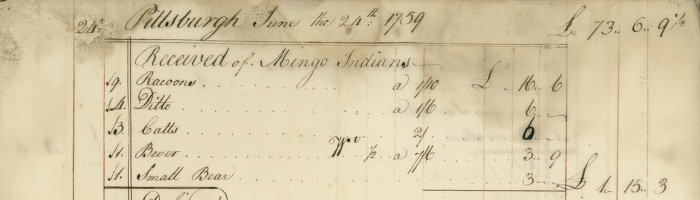 24th Pittsburgh June the 24th: 1759 £ 73.. 6.. 9½
Received of Mingo Indians
/9. Racoons a 1/10 £ 16.. 6
/4. Ditto a 1/6 6..
/3. Catts 2/ 6
/1. Bever Wt ½ a 7/6 3.. 9
/1. Small Bear 3.. £ 1.. 15.. 3